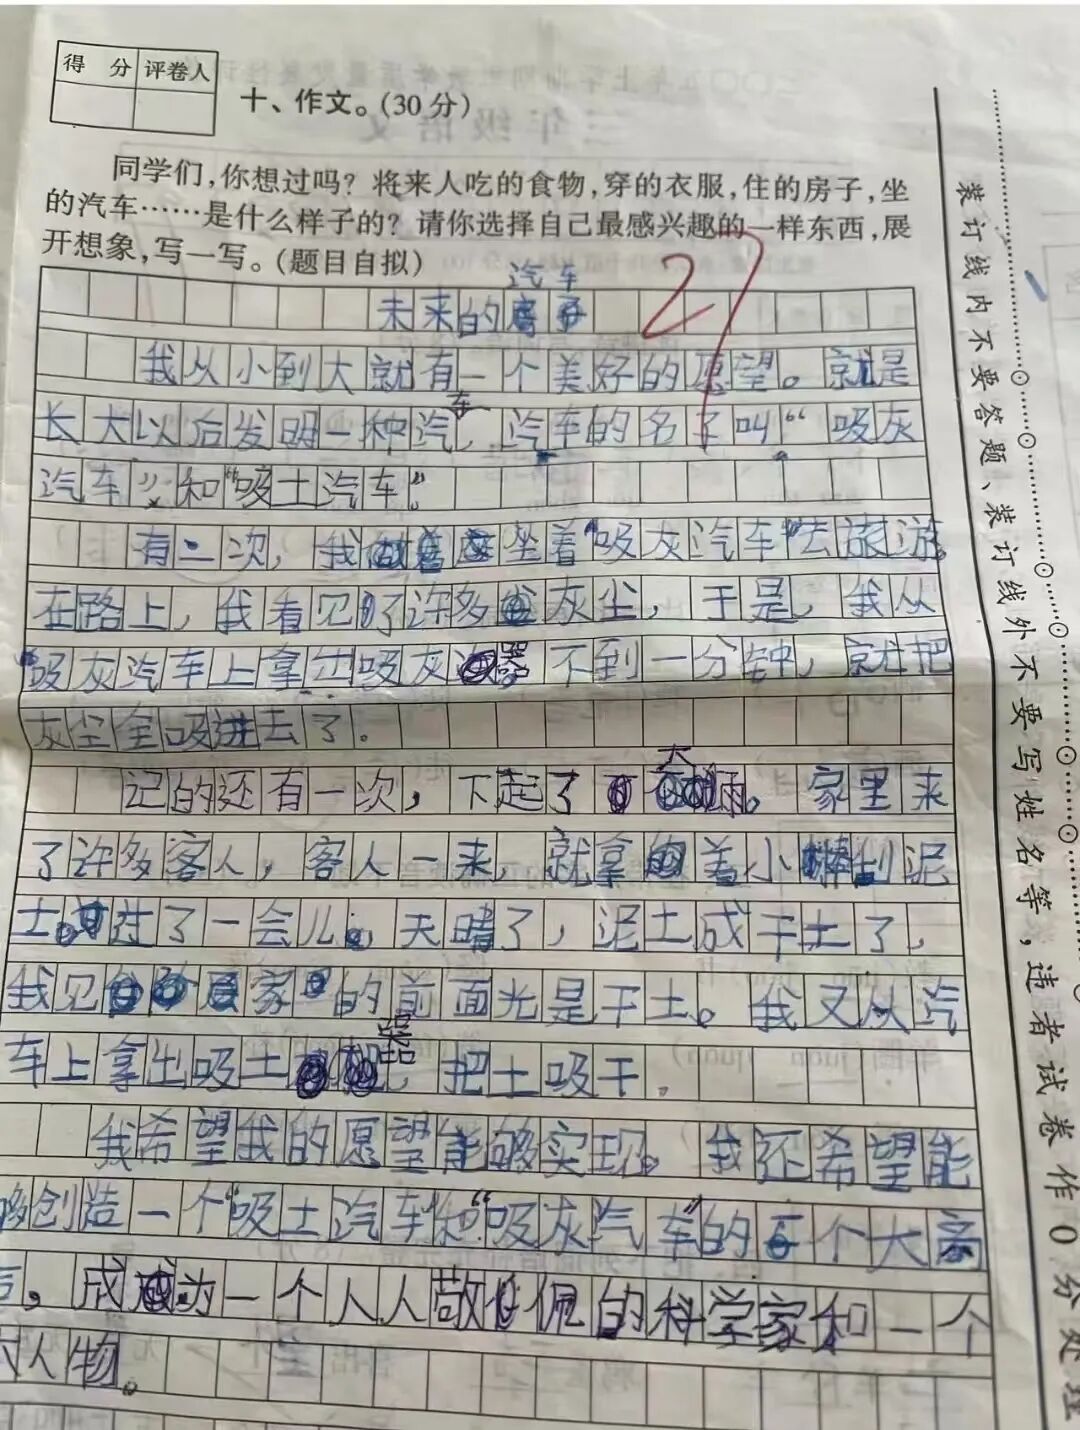 得 分 评卷人
十、作文。(30分)
同学们,你想过吗?将来人吃的食物,穿的衣服,住的房子,坐
的汽车……是什么样子的?请你选择自己最感兴趣的一样东西,展
开想象,写一写。(题目自拟)
27
汽车
未来的
我从小到大就有一个美好的愿望。就是
长大以后发明一种汽车,汽车的名字叫“吸灰
汽车”和“吸土汽车”。
有一次,我坐着“吸灰汽车”去旅游。
在路上,我看见了许多灰尘,于是,我从
吸灰汽车上拿出吸灰器不到一分钟,就把
灰尘全吸进去了。
记的还有一次,下起了大雨。家里来
了许多客人,客人一来,就拿着小棒刮泥
土。过了一会儿,天晴了,泥土成干土了,
我见家的前面光是干土。我又从汽
车上拿出吸土器,把土吸干。
我希望我的愿望能够实现。我还希望能
够创造一个“吸土汽车”和“吸灰汽车”的一个大商
店。成为一个人人敬佩的科学家和一个
人物。
装订线内不要答题、装订线外不要写姓名等,违者试卷作0分处理